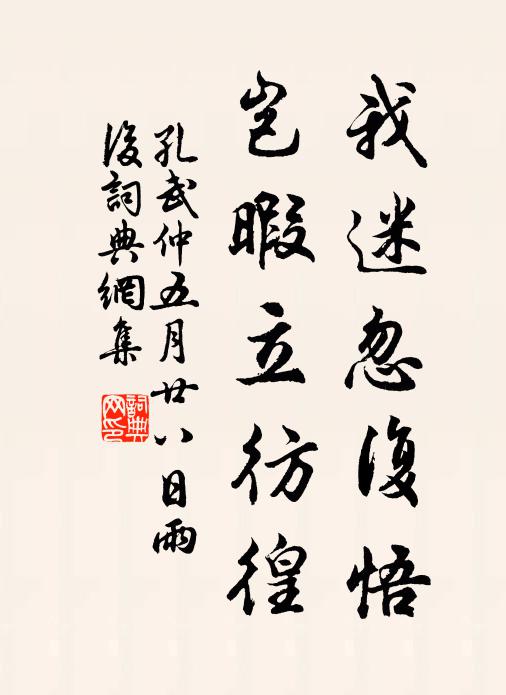 我迷忽復悟
豈暇立彷徨
孔武仲五月廿八日雨
後詞典網集
詞典
网印